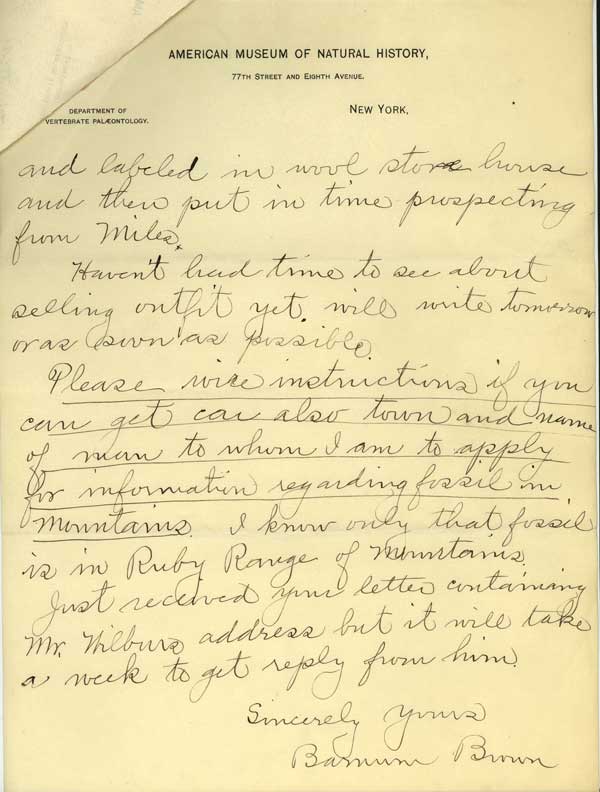 AMERICAN MUSEUM OF NATURAL HISTORY,
77TH STREET AND EIGHTH AVENUE.
DEPARTMENT OF
VERTEBRATE PALÆONTOLOGY.
NEW YORK,
and labeled in wool store house
and then put in time prospecting
from Miles.
Haven't had time to see about
selling outfit yet. will write tomorrow
or as soon as possible.
Please wire instructions if you
can get car also town and name
of man to whom I am to apply
for information regarding fossil in
Mountains. I know only that fossil
is in Ruby Range of Mountains.
Just received your letter containing
Mr. Wilburs address but it will take
a week to get reply from him.
Sincerely Yours
Barnum Brown